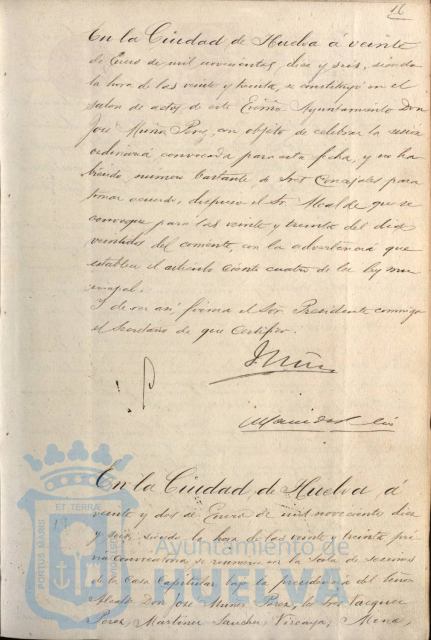 16
En la Ciudad de Huelva á veinte
de Enero de mil novecientos diez y seis, siendo
la hora de las veinte y treinta, se constituyó en el
salon de actos de este Excmo Ayuntamiento Don
José Muñoz Perez, con objeto de celebrar la sesion
ordinaria convocada para esta fecha, y no ha-
biendo numero bastante de Sres Concejales para
tomar acuerdo, dispuso el Sr. Alcalde que se
convoque para las veinte y treinta del dia
veintidos del corriente, con la advertencia que
establece el articulo ciento cuatro de la ley mu-
nicipal.
Y de ser asi firma el Sor Presidente conmigo
el Secretario de que certifico.
J. Muñoz
En la Ciudad de Huelva á
veinte y dos de Enero de mil novecientos diez
y seis, siendo la hora de las veinte y treinta pre-
via convocatoria, se reunieron en la Sala de sesiones
de la Casa Capitular bajo la presidencia del Señor
Alcalde Don José Muñoz Perez, los Sres Jacquez
Perez, Martinez Sanchez, Vizcaya, Mena,
PORTUS MARIS ET TERRAE
Ayuntamiento de
HUELVA